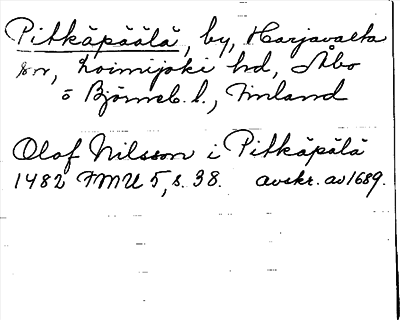 Pitkäpäälä, by, Harjavalta
sn, Loimijoki hd, Åbo
o Björneb. l., Finland
Olof Nilsson i Pitkäpälä
1482 FMU 5, s. 38. avskr. av 1689.